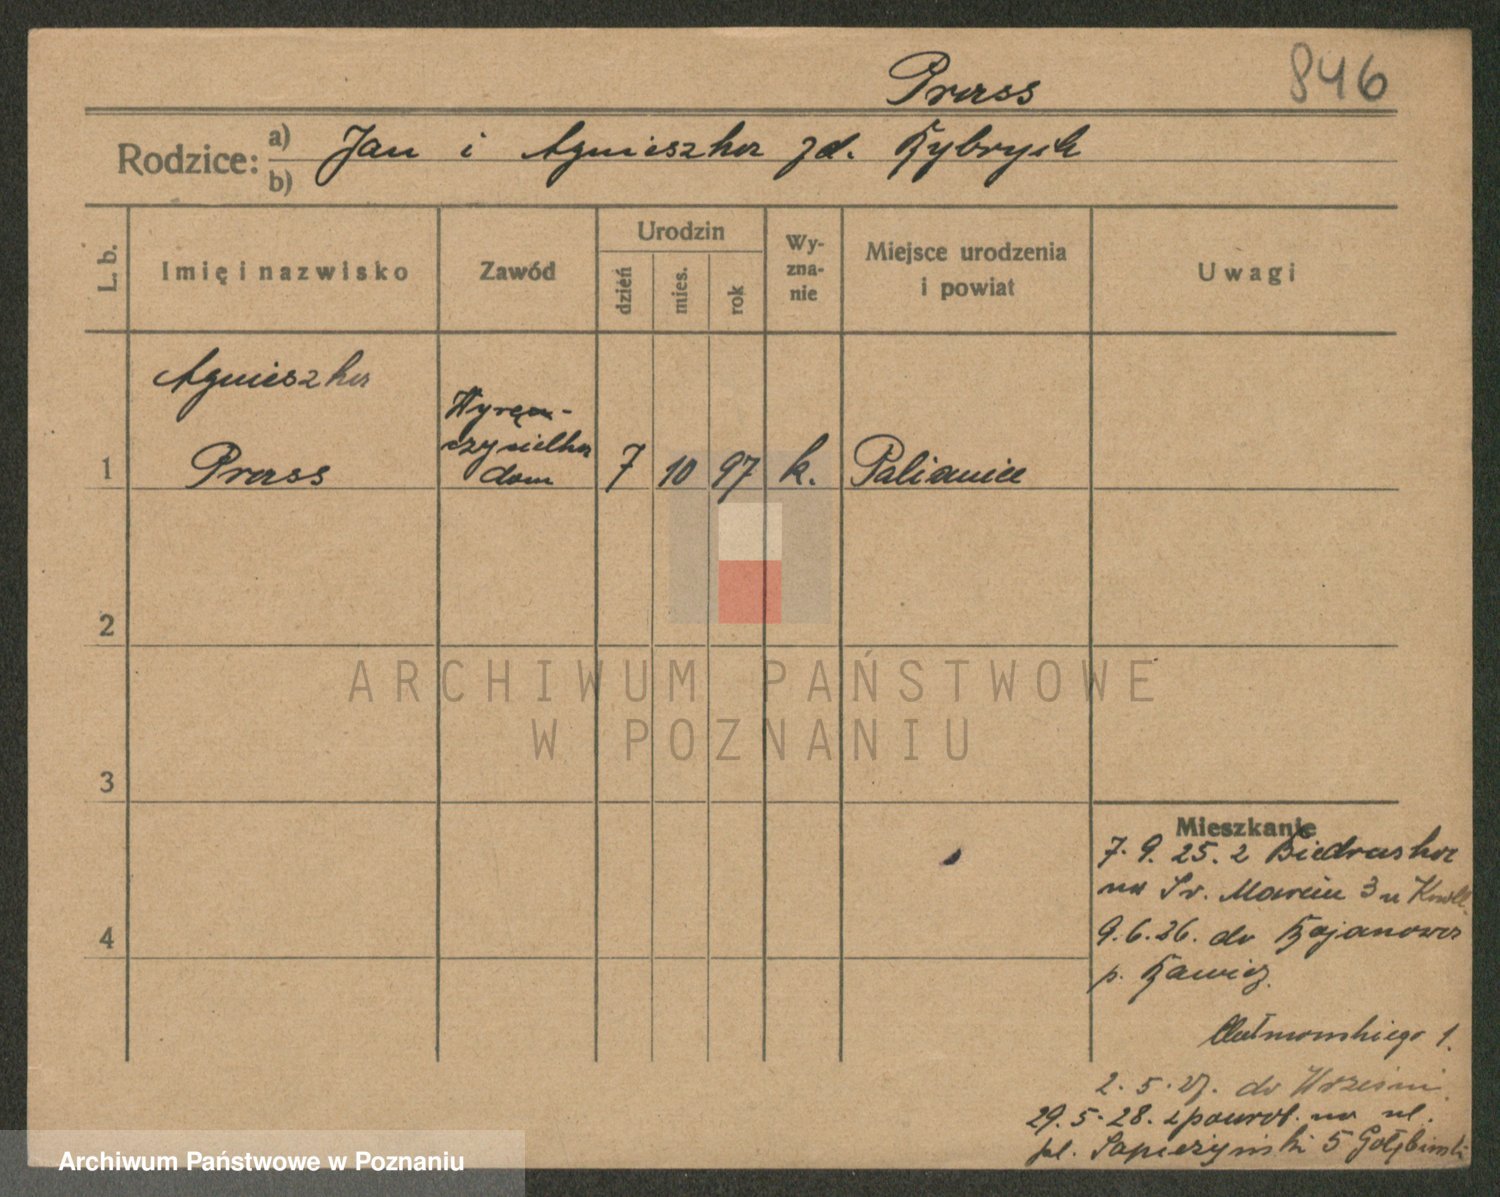 Prass
846
Rodzice:
a)
b)
Jan i Agnieszka zd. Rybryck
L. b.
Imię i nazwisko
Zawód
Urodzin
dzień
mies.
rok
Wy-
zna-
nie
Miejsce urodzenia
i powiat
Uwagi
Agnieszka
Prass
Wyręcz-
czycielka
dom
1
7
10
97
k.
2
3
4
ARCHIWUM PAŃSTWOWE
W POZNANIU
Mieszkanie
7. 9. 25. z Biedruska
na Św. Marcin 3 u
9. 6. 26. do Bojanowa
p. Rawicz.
1.
2. 5. 27. do Wrześni.
29. 5. 28. z powrot. na ul.
pl. Sapieżyński 5
Archiwum Państwowe w Poznaniu